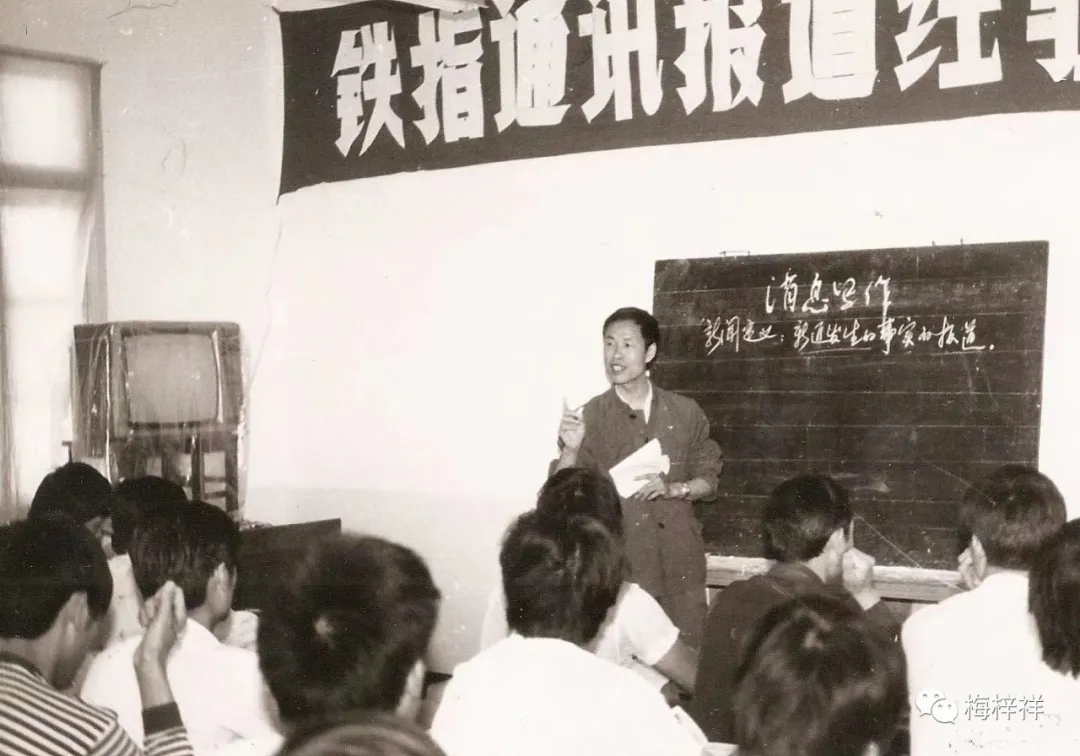 铁指通讯报道经
消息写作
新闻定义：新近发生的事实的报道.
梅梓祥